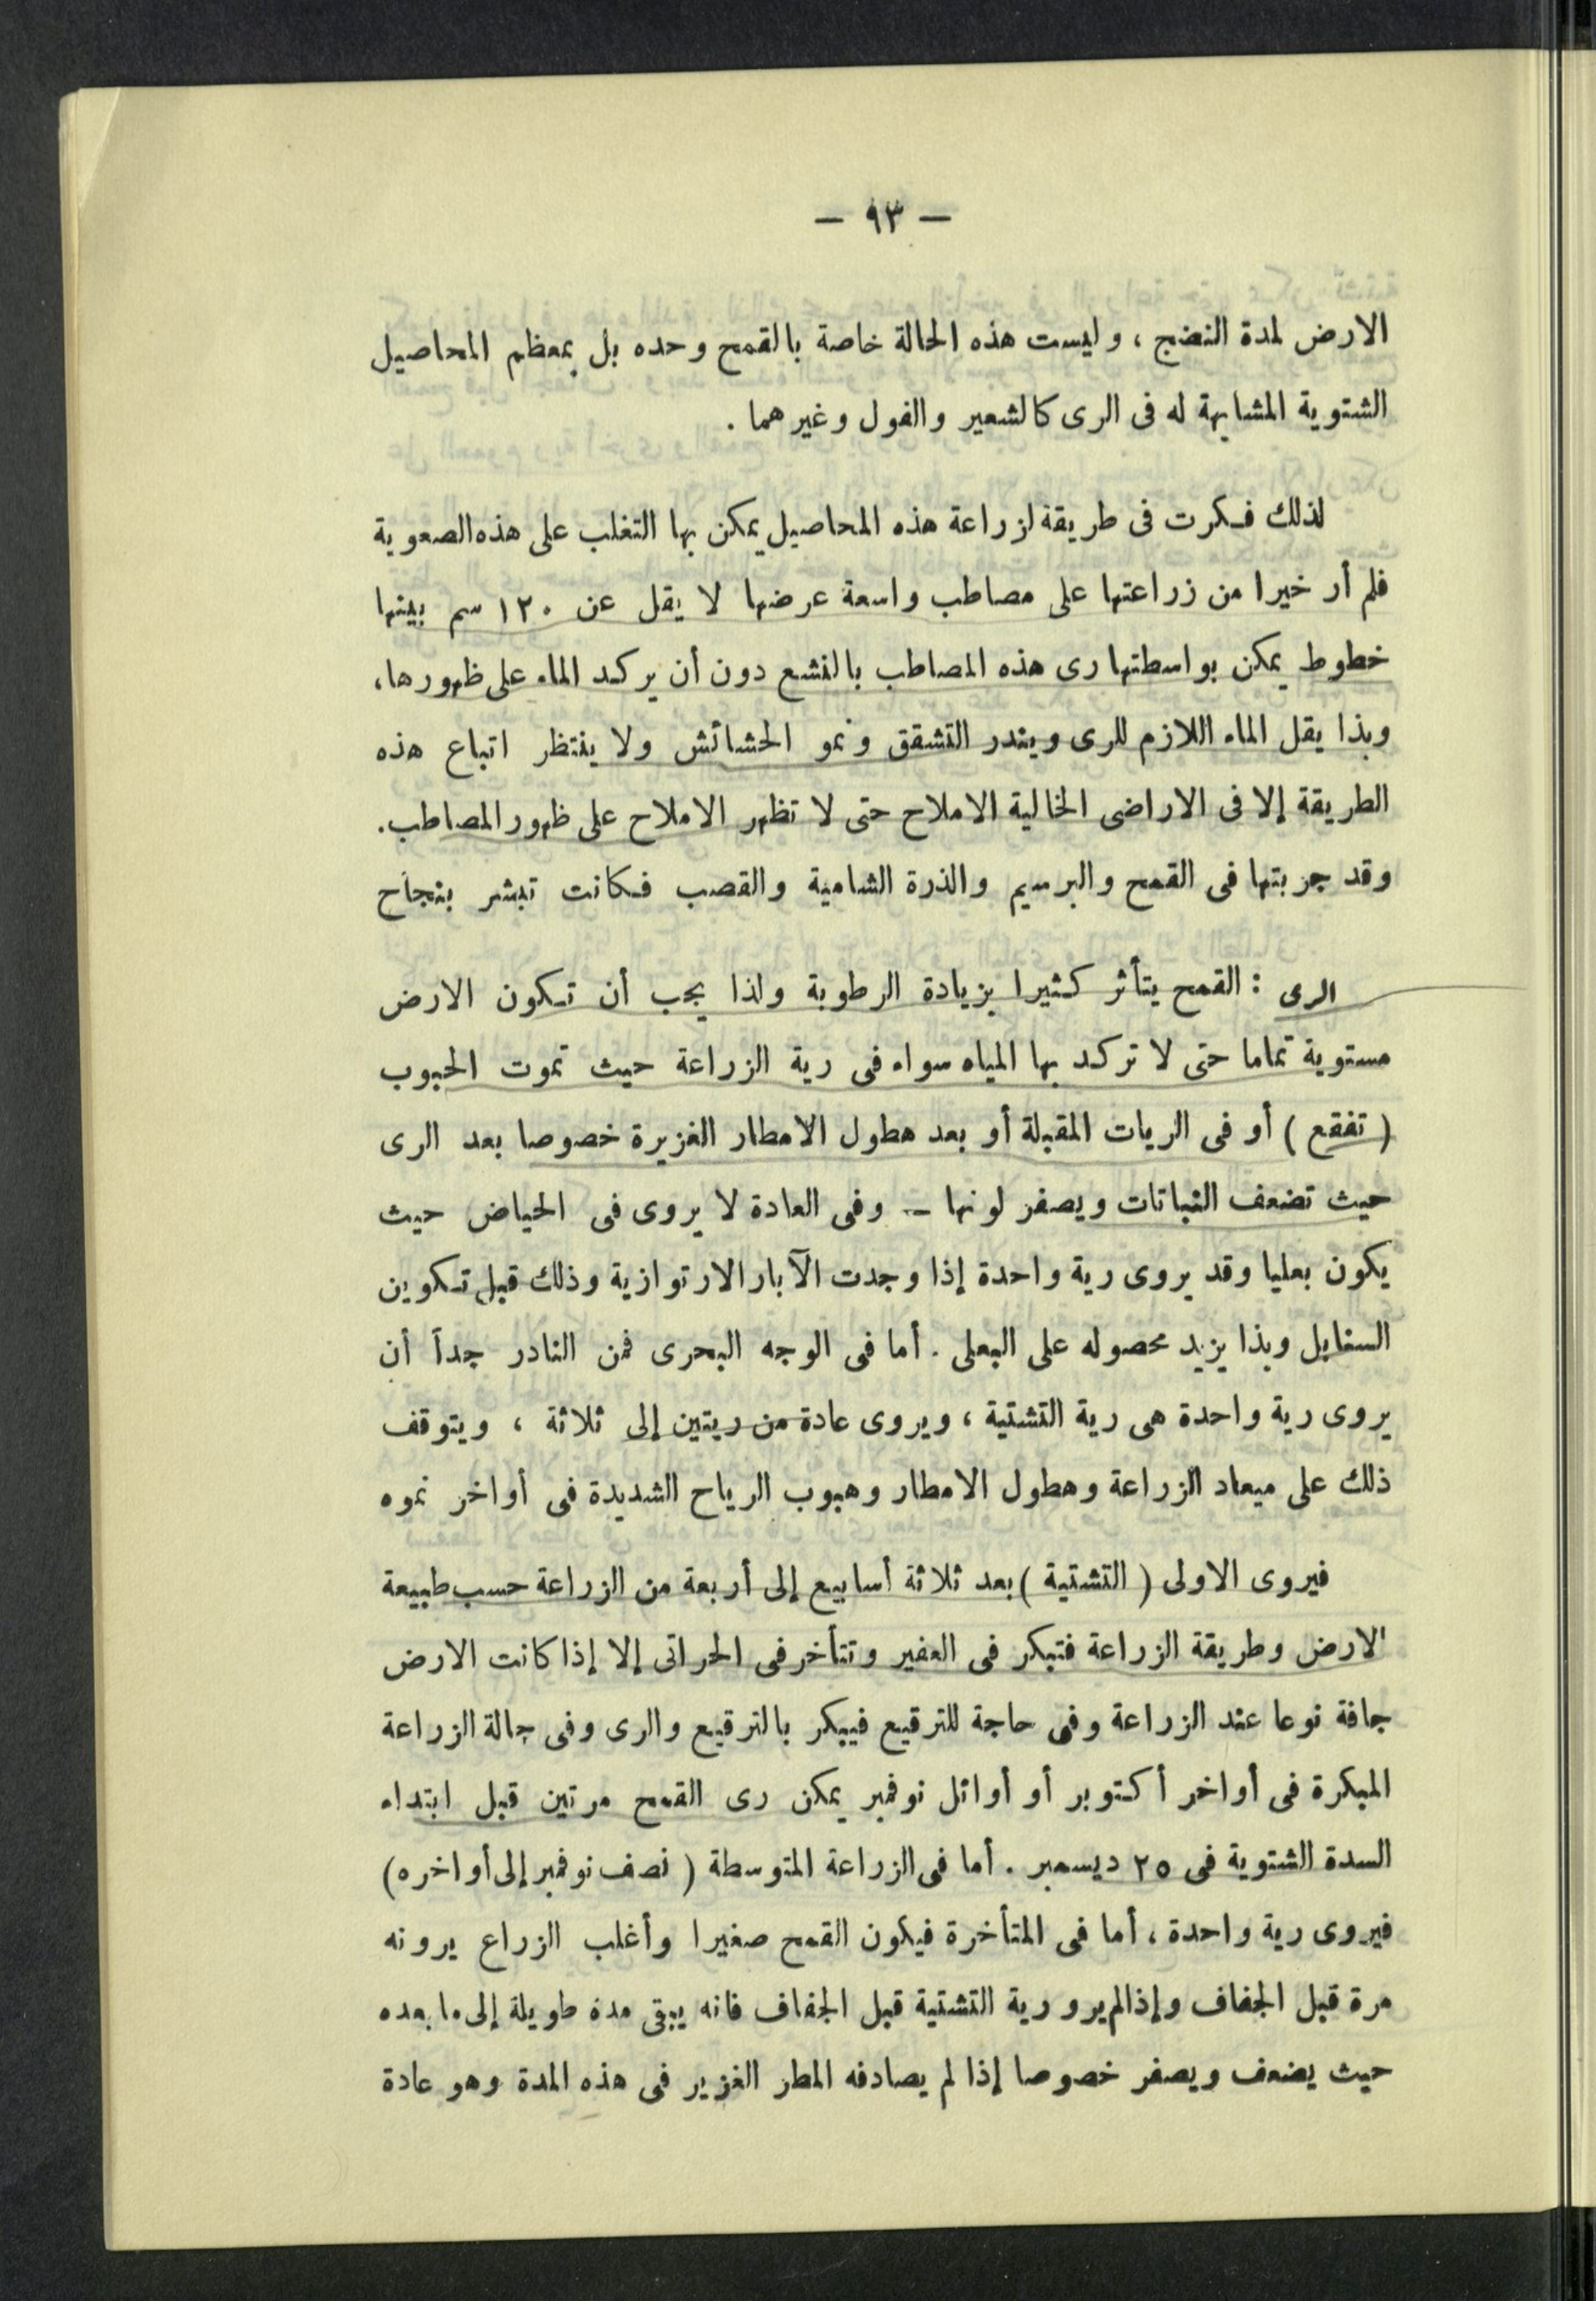 — ٩٣ —
الارض لمدة النضج ، وليست هذه الحالة خاصة بالقمح وحده بل بمعظم المحاصيل
الشتوية المشابهة له فى الرى كالشعير والفول وغيرهما .
لذلك فكرت فى طريقة لزراعة هذه المحاصيل يمكن بها التغلب على هذه الصعوبة
فلم أر خيرا من زراعتها على مصاطب واسعة عرضها لا يقل عن ١٢٠ سم بينها
خطوط يمكن بواسطتها رى هذه المصاطب بالنشع دون أن يركد الماء على ظهورها،
وبذا يقل الماء اللازم للرى ويندر التشقق ونمو الحشائش ولا ينتظر اتباع هذه
الطريقة إلا فى الاراضى الخالية الاملاح حتى لا تظهر الاملاح على ظهور المصاطب.
وقد جربتها فى القمح والبرسيم والذرة الشامية والقصب فكانت تبشر بنجاح
الرى : القمح يتأثر كثيرا بزيادة الرطوبة ولذا يجب أن تكون الارض
مستوية تماما حتى لا تركد بها المياه سواء فى رية الزراعة حيث تموت الحبوب
( تفقع ) أو فى الريات المقبلة أو بعد هطول الامطار الغزيرة خصوصا بعد الرى
حيث تضعف النباتات ويصفر لونها — وفى العادة لا يروى فى الحياض حيث
يكون بعليا وقد يروى رية واحدة إذا وجدت الآبار الارتوازية وذلك قبل تكوين
السنابل وبذا يزيد محصوله على البعلى . أما فى الوجه البحرى فمن النادر جداً أن
يروى رية واحدة هى رية التشتية ، ويروى عادة من ريتين إلى ثلاثة ، ويتوقف
ذلك على ميعاد الزراعة وهطول الامطار وهبوب الرياح الشديدة فى أواخر نموه
فيروى الاولى ( التشتية ) بعد ثلاثة أسابيع إلى أربعة من الزراعة حسب طبيعة
الارض وطريقة الزراعة فتبكر فى العفير وتتأخر فى الحراتى إلا إذا كانت الارض
جافة نوعا عند الزراعة وفى حاجة للترقيع فيبكر بالترقيع والرى وفى حالة الزراعة
المبكرة فى أواخر أكتوبر أو أوائل نوفمبر يمكن رى القمح مرتين قبل ابتداء
السدة الشتوية فى ٢٥ ديسمبر . أما فى الزراعة المتوسطة ( نصف نوفمبر إلى أواخره)
فيروى رية واحدة ، أما فى المتأخرة فيكون القمح صغيرا وأغلب الزراع يرونه
مرة قبل الجفاف وإذا لم يرو رية التشتية قبل الجفاف فانه يبقى مدة طويلة إلى ما بعده
حيث يضعف ويصفر خصوصا إذا لم يصادفه المطر الغزير فى هذه المدة وهو عادة